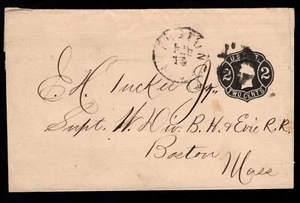 FEB
U.S.
2 2
TWO CENTS
E. H. Tucker Esq.
Supt. W. Div. B. H. & Erie R.R.
Boston
Mass